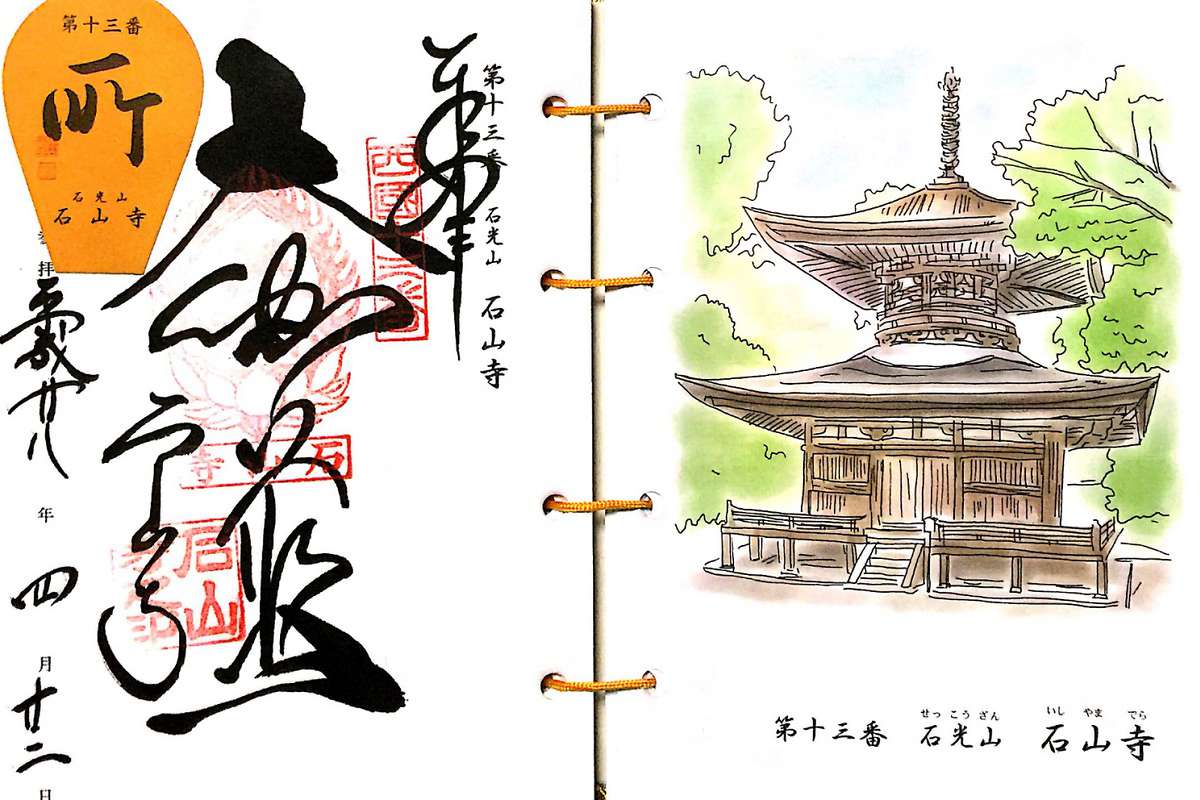 第十三番 石光山 石山寺
西國十三番
大伽藍
石山寺
石山
拝 平成廿八年四月廿二日
第十三番
所
石光山
石山寺
せっこうざん いしやまでら
第十三番 石光山 石山寺